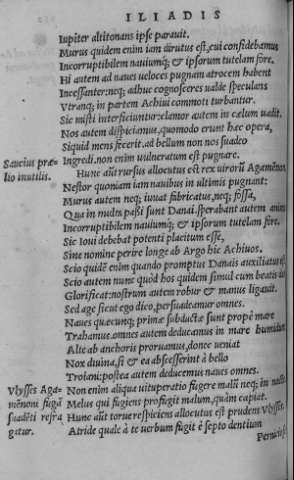 ILIADIS
Iupiter altitonans ipse parauit.
Murus quidem enim iam dirutus est, cui confidebamus
Incorruptibilem nauiumq; & ipsorum tutelam fore.
Hi autem ad naues ueloces pugnam atrocem habent
Incessanter: neq; adhuc cognosceres ualde speculans
Vtranq; in partem Achiui commoti turbantur.
Sic misti interficiuntur: clamor autem in cælum ualit.
Nos autem dispiciamus, quomodo erunt hæc opera,
Siquid mens fecerit. ad bellum non nos suadeo
Saucius præ Ingredi. non enim uulneratum est pugnare.
lio inutilis. Hunc aũt rursus allocutus est rex uirorũ Agamemnon
Nestor quoniam iam nauibus in ultimis pugnant:
Murus autem neq; iuuat fabricatus, neq; fossa,
Qua in multa passi sunt Danai. sperabant autem animo
Incorruptibilem nauiumq; & ipsorum tutelam fore.
Sic Ioui debebat potenti placitum esse,
Sine nomine perire longe ab Argo hic Achiuos.
Scio quidẽ enim quando promptus Danais auxiliatus est
Scio autem nunc quòd hos quidem simul cum beatis
Glorificat: nostrum autem robur & manus ligauit.
Sed age sicut ego dico, persuadeamur omnes.
Naues quæcunq; primæ subductæ sunt prope mare
Trahamus. omnes autem deducamus in mare
Alte ab anchoris proruamus, donec ueniat
Nox diuina, si & ea abscesserint à bello
Troiani: postea autem deducemus naues omnes.
Vlysses Aga- Non enim aliqua uituperatio fugere malũ neq; in
mẽnoni fugã Melus qui fugiens profugit malum, quàm capiat.
suadẽti refra Hunc aũt torue respiciens allocutus est prudens Vlysses.
gatur. Atride quale à te uerbum fugit è septo dentium